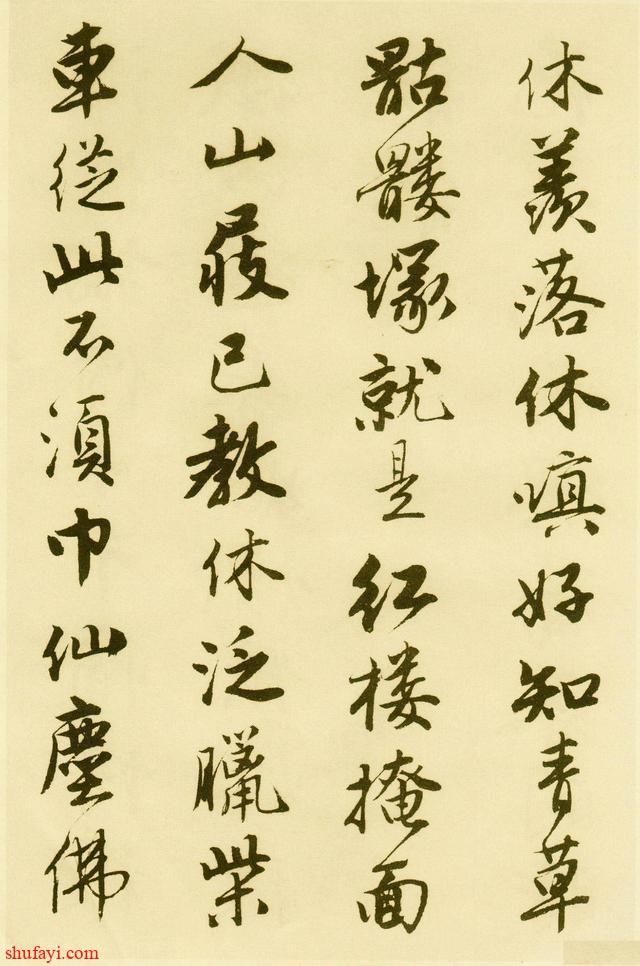 休羨落休嗔好知青草
骷髏塚就是紅樓掩面
人山屐已教休泛臘柴
車從此不須巾仙塵佛
shufayi.com